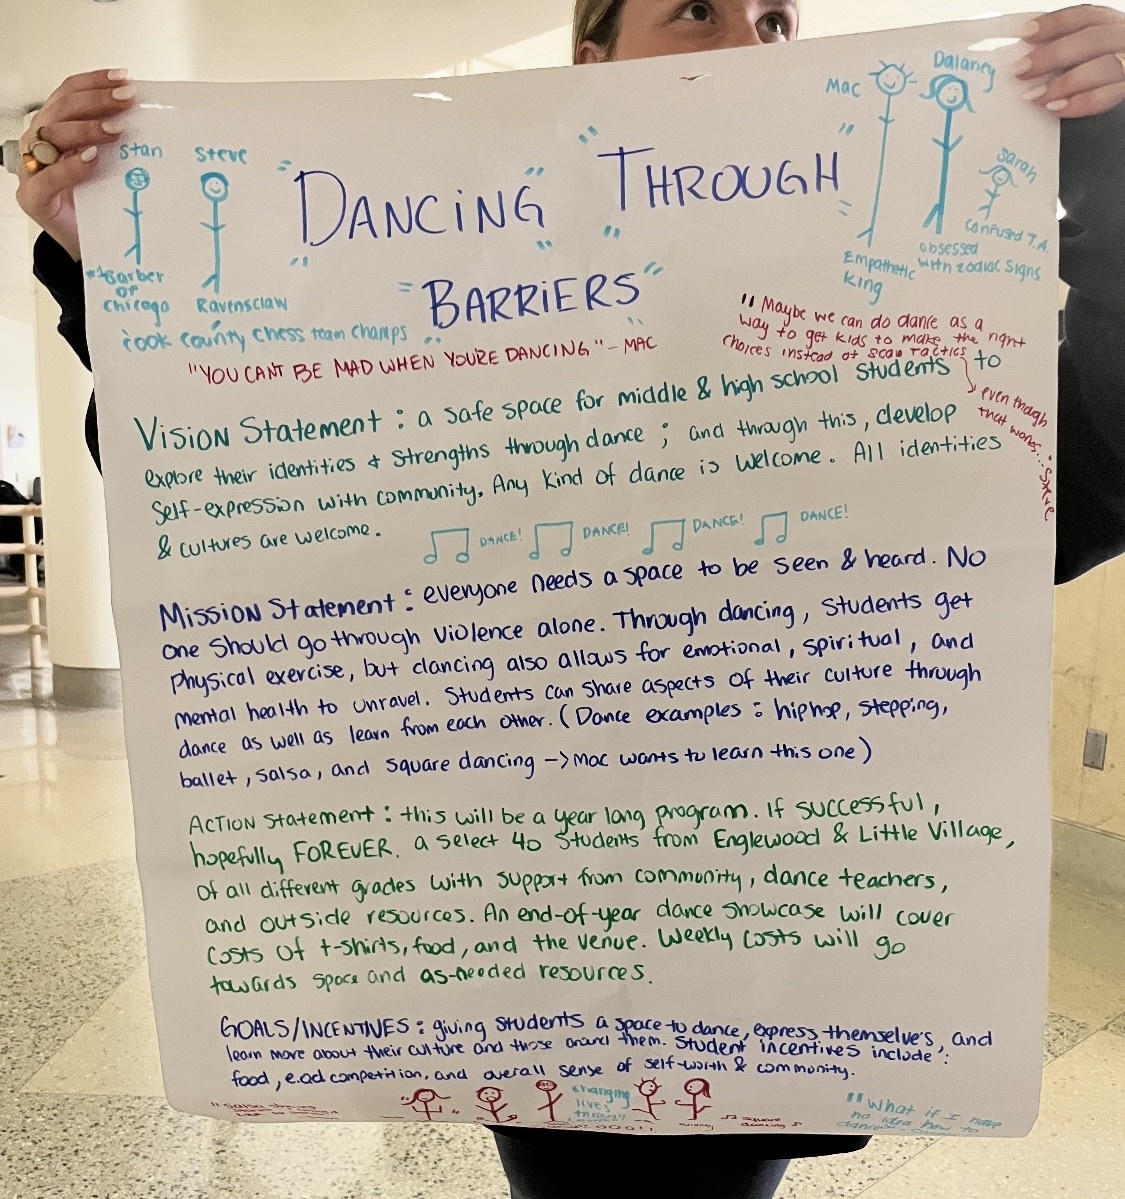 Stan
Steve
Mac
Dalaney
Sarah
Confused T.A.
obsessed
with zodiac signs
Empathetic
King
Barber
of
Chicago
Ravensclaw
cook county chess team champs
"DANCING" "THROUGH"
"BARRIERS"
"YOU CAN'T BE MAD WHEN YOU'RE DANCING" - MAC
"Maybe we can do dance as a
way to get kids to make the right
choices instead of scar tactics
even though
that works..." - Steve
Vision Statement: a safe space for middle & high school students to
explore their identities & strengths through dance; and through this, develop
self-expression with community. Any kind of dance is welcome. All identities
& cultures are welcome.
DANCE! DANCE! DANCE! DANCE!
Mission Statement: everyone needs a space to be seen & heard. No
one should go through violence alone. Through dancing, students get
physical exercise, but dancing also allows for emotional, spiritual, and
mental health to unravel. Students can share aspects of their culture through
dance as well as learn from each other. (Dance examples: hiphop, stepping,
ballet, salsa, and square dancing -> Mac wants to learn this one)
ACTION Statement: this will be a year long program. If successful,
hopefully FOREVER. a select 40 students from Englewood & Little Village,
of all different grades with support from community, dance teachers,
and outside resources. An end-of-year dance showcase will cover
costs of t-shirts, food, and the venue. Weekly costs will go
towards space and as-needed resources.
GOALS/INCENTIVES: giving students a space to dance, express themselve's, and
learn more about their culture and those around them. Student incentives include:
food, e.o.d competition, and overall sense of self-worth & community.
changing
lives
through
square
dancing
"What if I have
no idea how to
dance